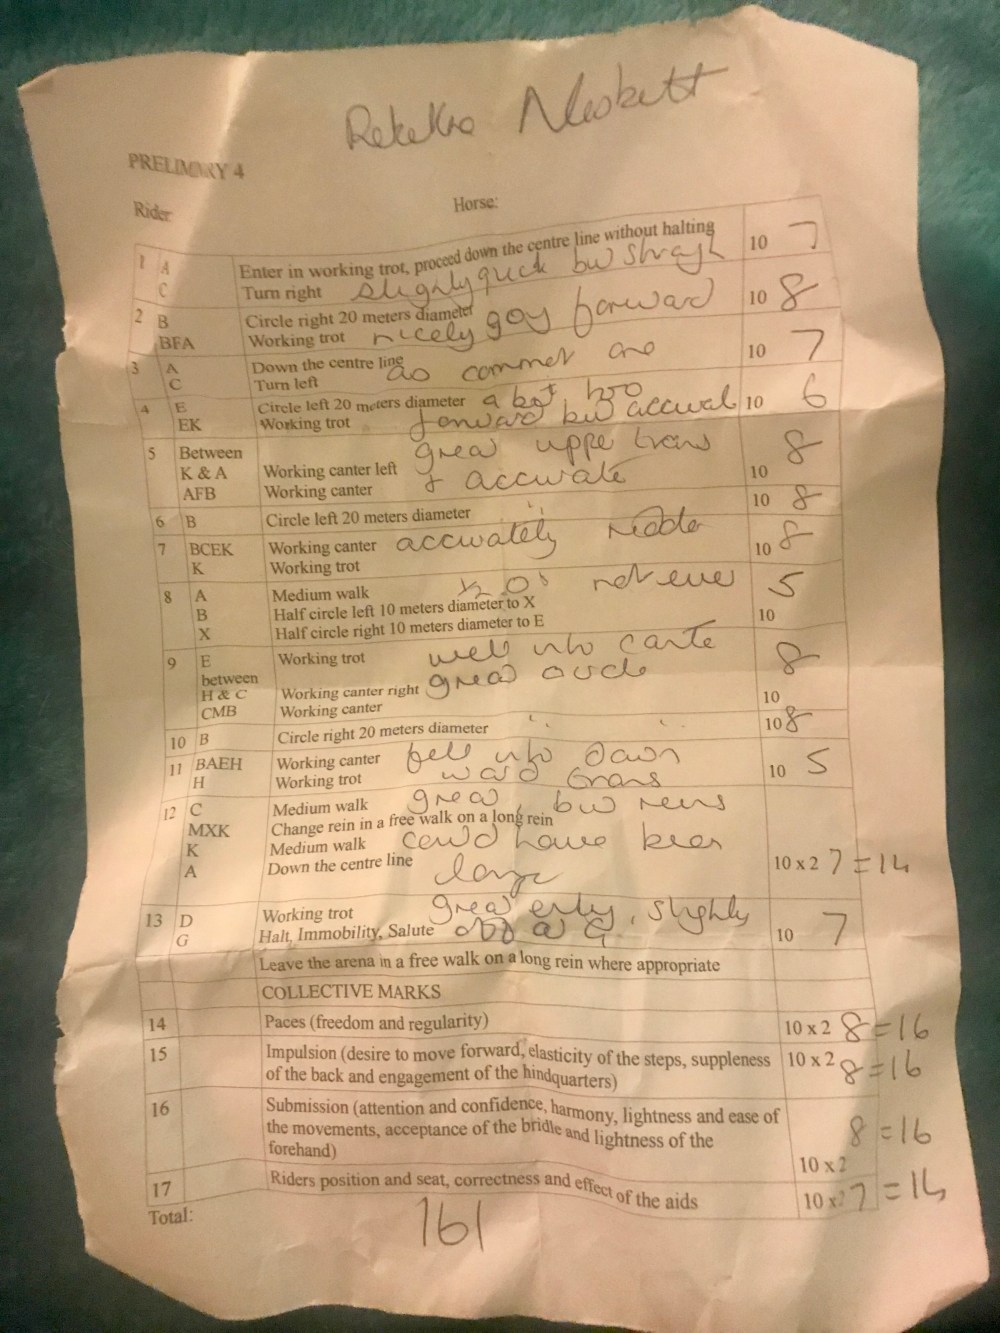 Nesbitt
PRELIMINARY 4
Rider Horse:
1 A Enter in working trot, proceed down the centre line without halting 10 7
C Turn right slightly quick but straight
2 B Circle right 20 meters diameter 10 8
BFA Working trot nicely going forward
3 A Down the centre line as comment one 10 7
C Turn left
4 E Circle left 20 meters diameter a bit too 10 6
EK Working trot forward but accurate
5 Between great upper trans 8
K & A Working canter left & accurate 10
AFB Working canter
6 B Circle left 20 meters diameter " 10 8
7 BCEK Working canter accurately ridden 10 8
K Working trot
8 A Medium walk ½ 0s not even 5
B Half circle left 10 meters diameter to X
X Half circle right 10 meters diameter to E 10
9 E Working trot well into canter 8
between great circle
H & C Working canter right 10
CMB Working canter
10 B Circle right 20 meters diameter " " 10 8
11 BAEH Working canter fell into down 10 5
H Working trot ward trans
12 C Medium walk great, but reins
MXK Change rein in a free walk on a long rein
K Medium walk could have been
A Down the centre line longer 10 x 2 7 = 14
13 D Working trot great entry, slightly
G Halt, Immobility, Salute off a G 10 7
Leave the arena in a free walk on a long rein where appropriate
COLLECTIVE MARKS
14 Paces (freedom and regularity) 10 x 2 8 = 16
15 Impulsion (desire to move forward, elasticity of the steps, suppleness 10 x 2 8 = 16
of the back and engagement of the hindquarters)
16 Submission (attention and confidence, harmony, lightness and ease of
the movements, acceptance of the bridle and lightness of the 8 = 16
forehand) 10 x 2
17 Riders position and seat, correctness and effect of the aids 10 x 2 7 = 14
Total: 161